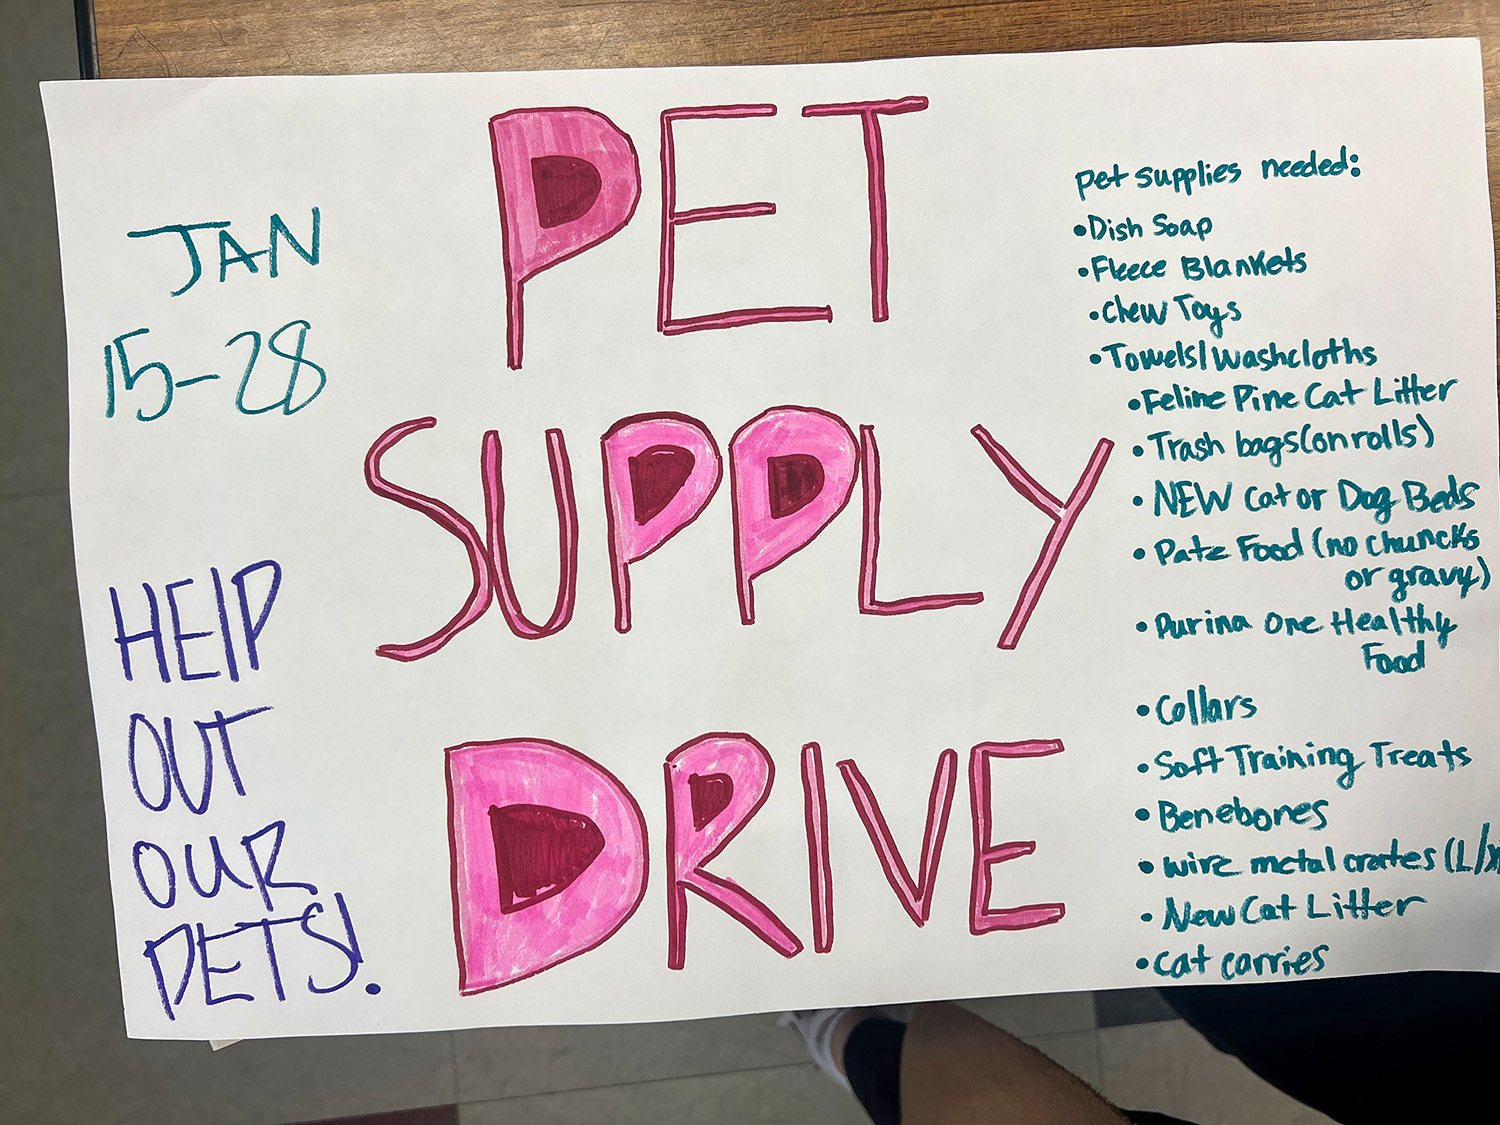 PET
SUPPLY
DRIVE
JAN
15-28
HElP
OUT
OUR
PETS!
pet supplies needed:
•Dish Soap
•Fleece Blankets
•Chew Toys
•Towels/washcloths
•Feline Pine Cat Litter
•Trash bags(on rolls)
•NEW Cat or Dog Beds
•Pate Food (no chuncks
or gravy)
•Purina One Healthy
Food
•Collars
•Soft Training Treats
•Benebones
•wire metal crates (L/
•New Cat Litter
•cat carries